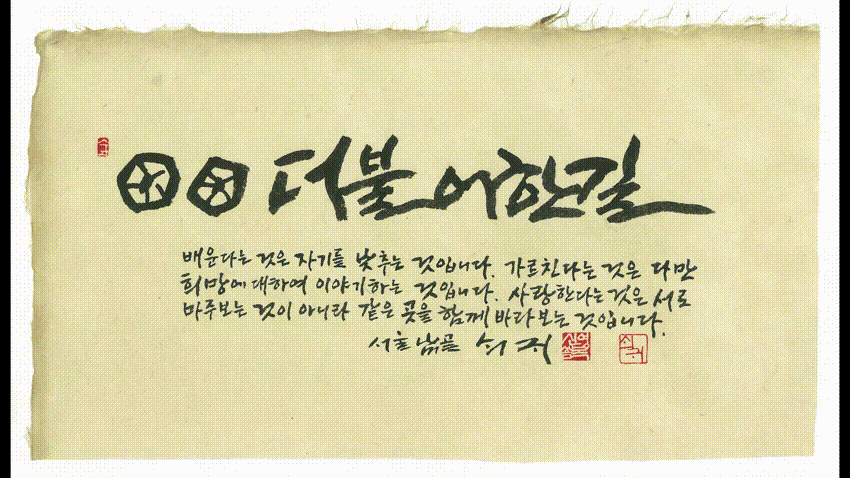 더불어한길
배운다는 것은 자기를 낮추는 것입니다. 가르친다는 것은 다만
희망에 대하여 이야기하는 것입니다. 사랑한다는것은 서로
마주보는 것이 아니라 같은 곳을 함께 바라보는 것입니다.
쇠귀